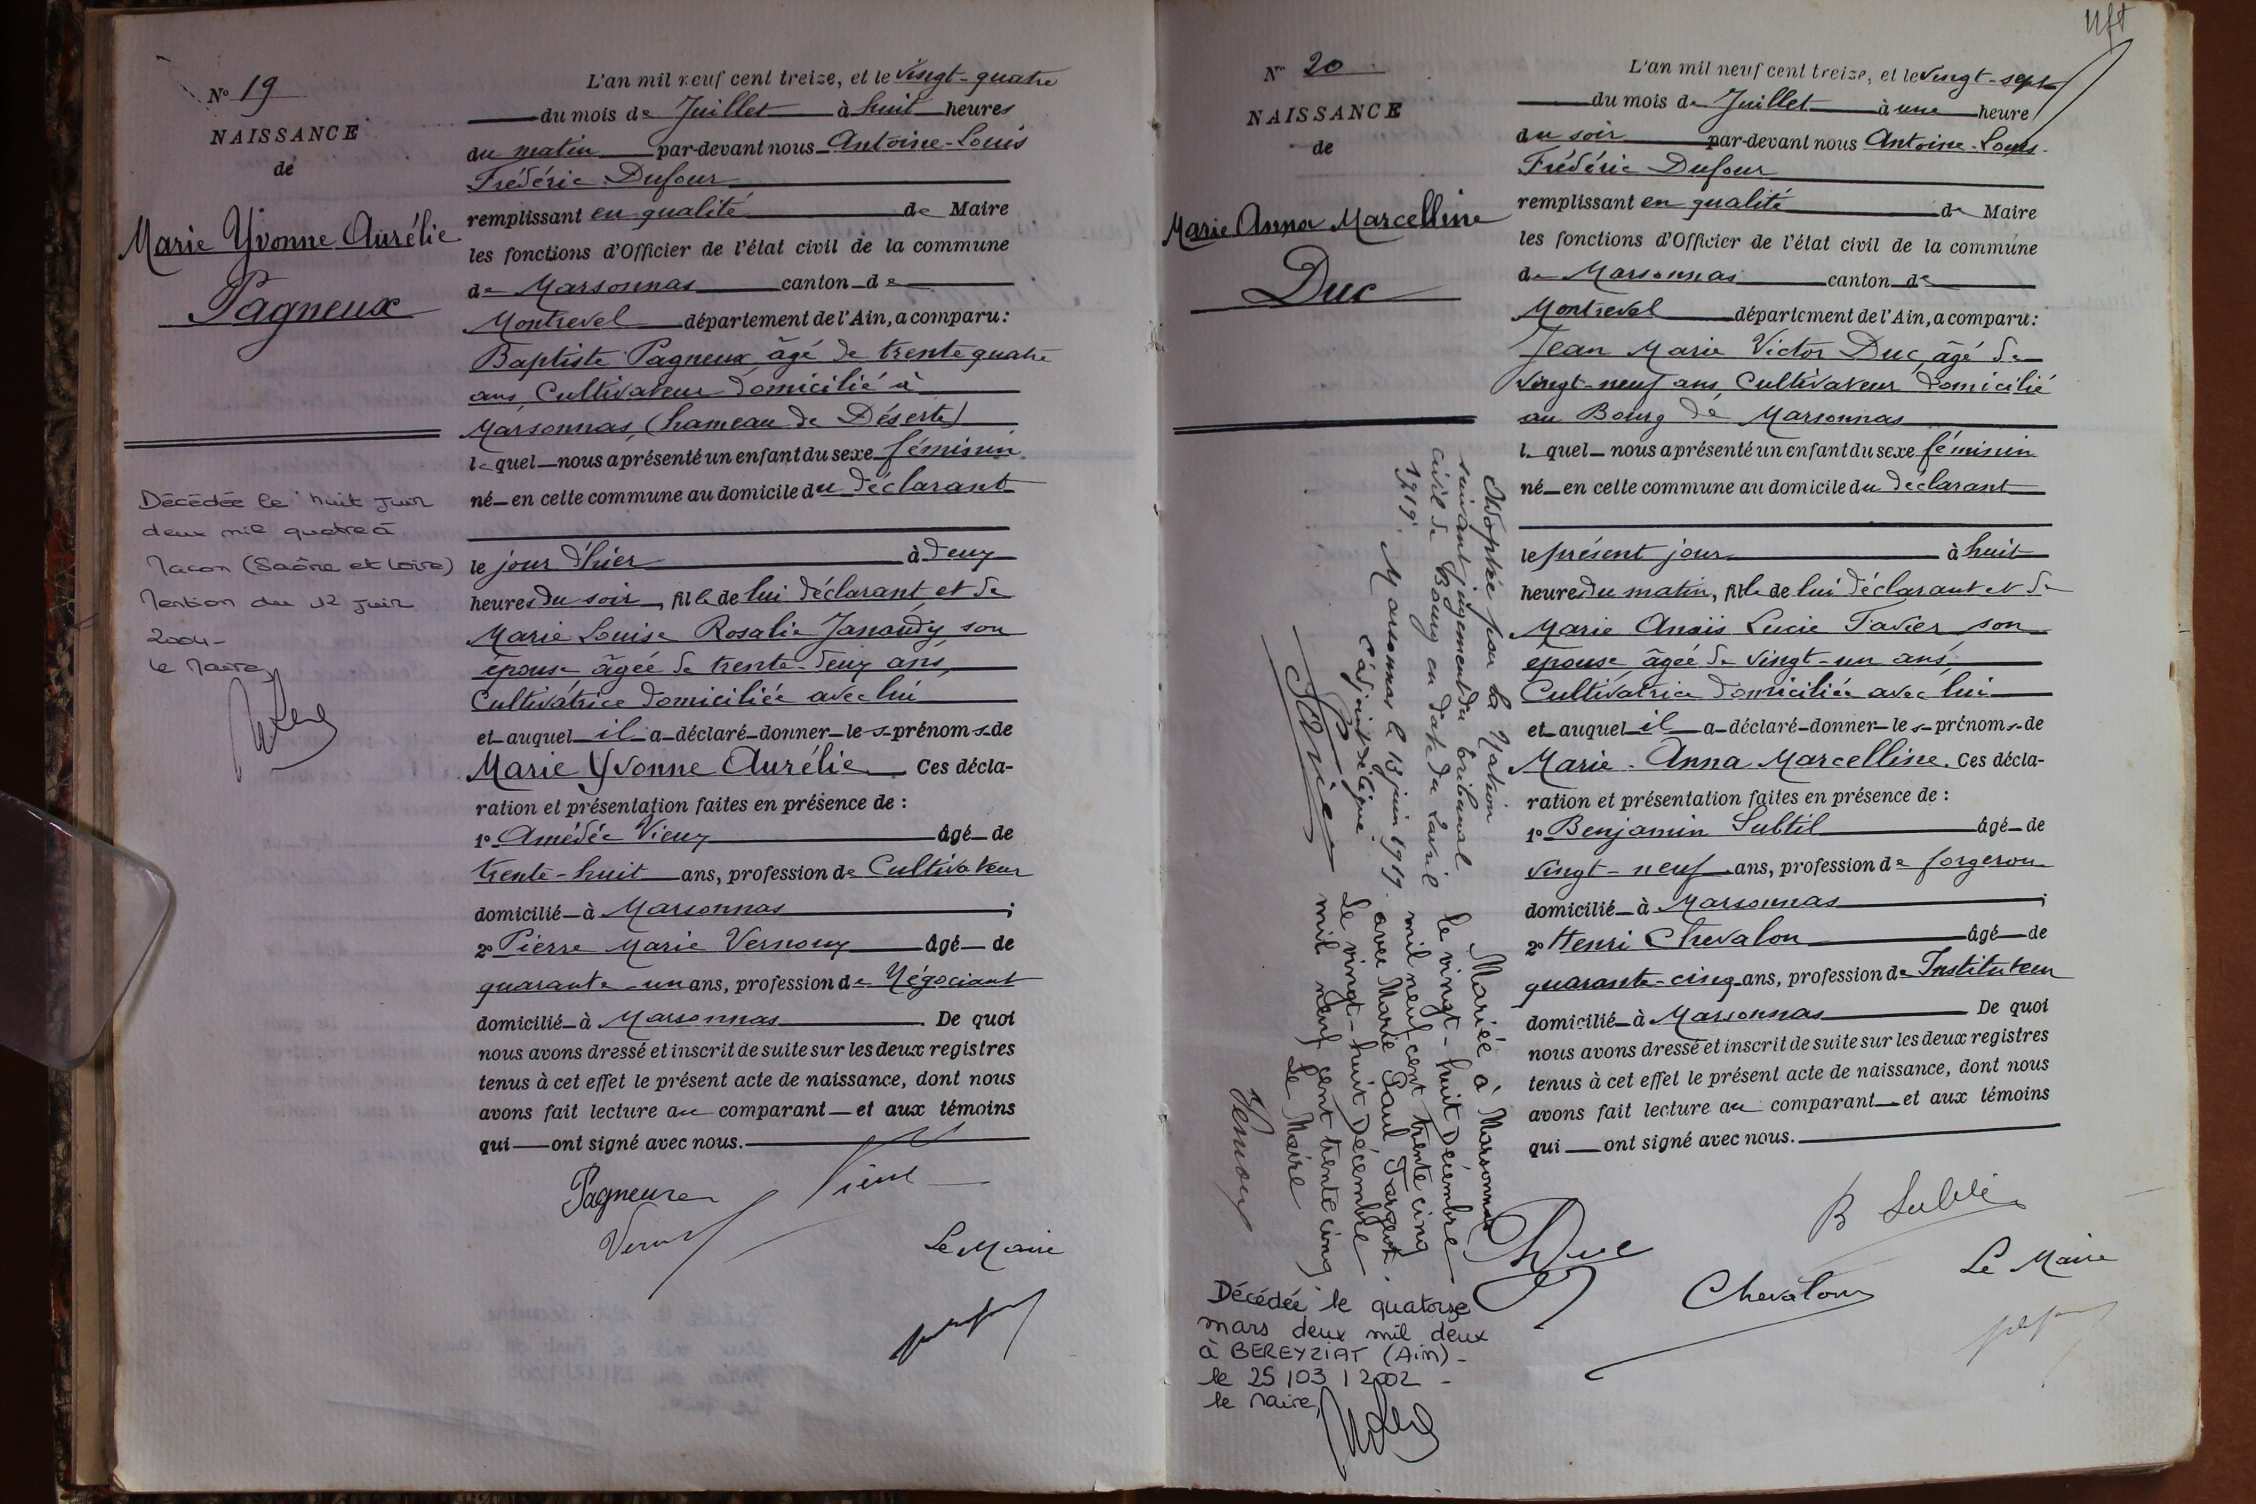 N° 19
NAISSANCE
de
Marie Yvonne Aurélie
Pagneux
Décédée le huit juin
deux mil quatre à
Macon (Saône et Loire)
Mention du 12 juin
2004-
le Maire,
L'an mil neuf cent treize, et le vingt-quatre
du mois de Juillet à huit heures
du matin par-devant nous Antoine-Louis
Frédéric Dufour
remplissant en qualité de Maire
les fonctions d'Officier de l'état civil de la commune
de Marsonnas canton de
Montrevel département de l'Ain, a comparu:
Baptiste Pagneux âgé de trente quatre
ans Cultivateur domicilié à
Marsonnas, (hameau de Déserte)
lequel nous a présenté un enfant du sexe féminin
né en cette commune au domicile du déclarant
le jour d'hier à deux
heures du soir, fille de lui déclarant et de
Marie Louise Rosalie Janaudy, son
épouse âgée de trente-deux ans,
Cultivatrice domiciliée avec lui
et auquel il a déclaré donner les prénoms de
Marie Yvonne Aurélie. Ces décla-
ration et présentation faites en présence de :
1° Amédée Vieux âgé de
trente-huit ans, profession de Cultivateur
domicilié à Marsonnas ;
2° Pierre Marie Vernoux âgé de
quarante-un ans, profession de Négociant
domicilié à Marsonnas. De quoi
nous avons dressé et inscrit de suite sur les deux registres
tenus à cet effet le présent acte de naissance, dont nous
avons fait lecture au comparant et aux témoins
qui ont signé avec nous.
Pagneux
Vieux
Le Maire
N° 20
NAISSANCE
de
Marie Anna Marcelline
Duc
Adoptée par la Nation
suivant jugement du tribunal
civil de Bourg en date du 4 avril
1919. Marsonnas le 13 juin 1919.
L'adjoint délégué.
Mariée à Marsonnas
le vingt-huit Décembre
mil neuf cent trente cinq
avec Marie Paul Fargeot.
Le vingt-huit Décembre
mil neuf cent trente cinq
Le Maire
Vernoux
Décédée le quatorze
mars deux mil deux
à BEREYZIAT (Ain)-
le 25/03/2002-
le Maire,
L'an mil neuf cent treize, et le vingt-sept
du mois de Juillet à une heure
du soir par-devant nous Antoine-Louis
Frédéric Dufour
remplissant en qualité de Maire
les fonctions d'Officier de l'état civil de la commune
de Marsonnas canton de
Montrevel département de l'Ain, a comparu:
Jean Marie Victor Duc, âgé de
vingt-neuf ans, Cultivateur domicilié
au Bourg de Marsonnas
lequel nous a présenté un enfant du sexe féminin
né en cette commune au domicile du déclarant
le présent jour à huit
heures du matin, fille de lui déclarant et de
Marie Anaïs Lucie Favier son
épouse âgée de vingt-un ans,
Cultivatrice domiciliée avec lui
et auquel il a déclaré donner les prénoms de
Marie-Anna Marcelline. Ces décla-
ration et présentation faites en présence de :
1° Benjamin Subtil âgé de
vingt-neuf ans, profession de forgeron
domicilié à Marsonnas ;
2° Henri Chevalon âgé de
quarante-cinq ans, profession de Instituteur
domicilié à Marsonnas De quoi
nous avons dressé et inscrit de suite sur les deux registres
tenus à cet effet le présent acte de naissance, dont nous
avons fait lecture au comparant et aux témoins
qui ont signé avec nous.
Duc
B Subtil
Chevalon
Le Maire